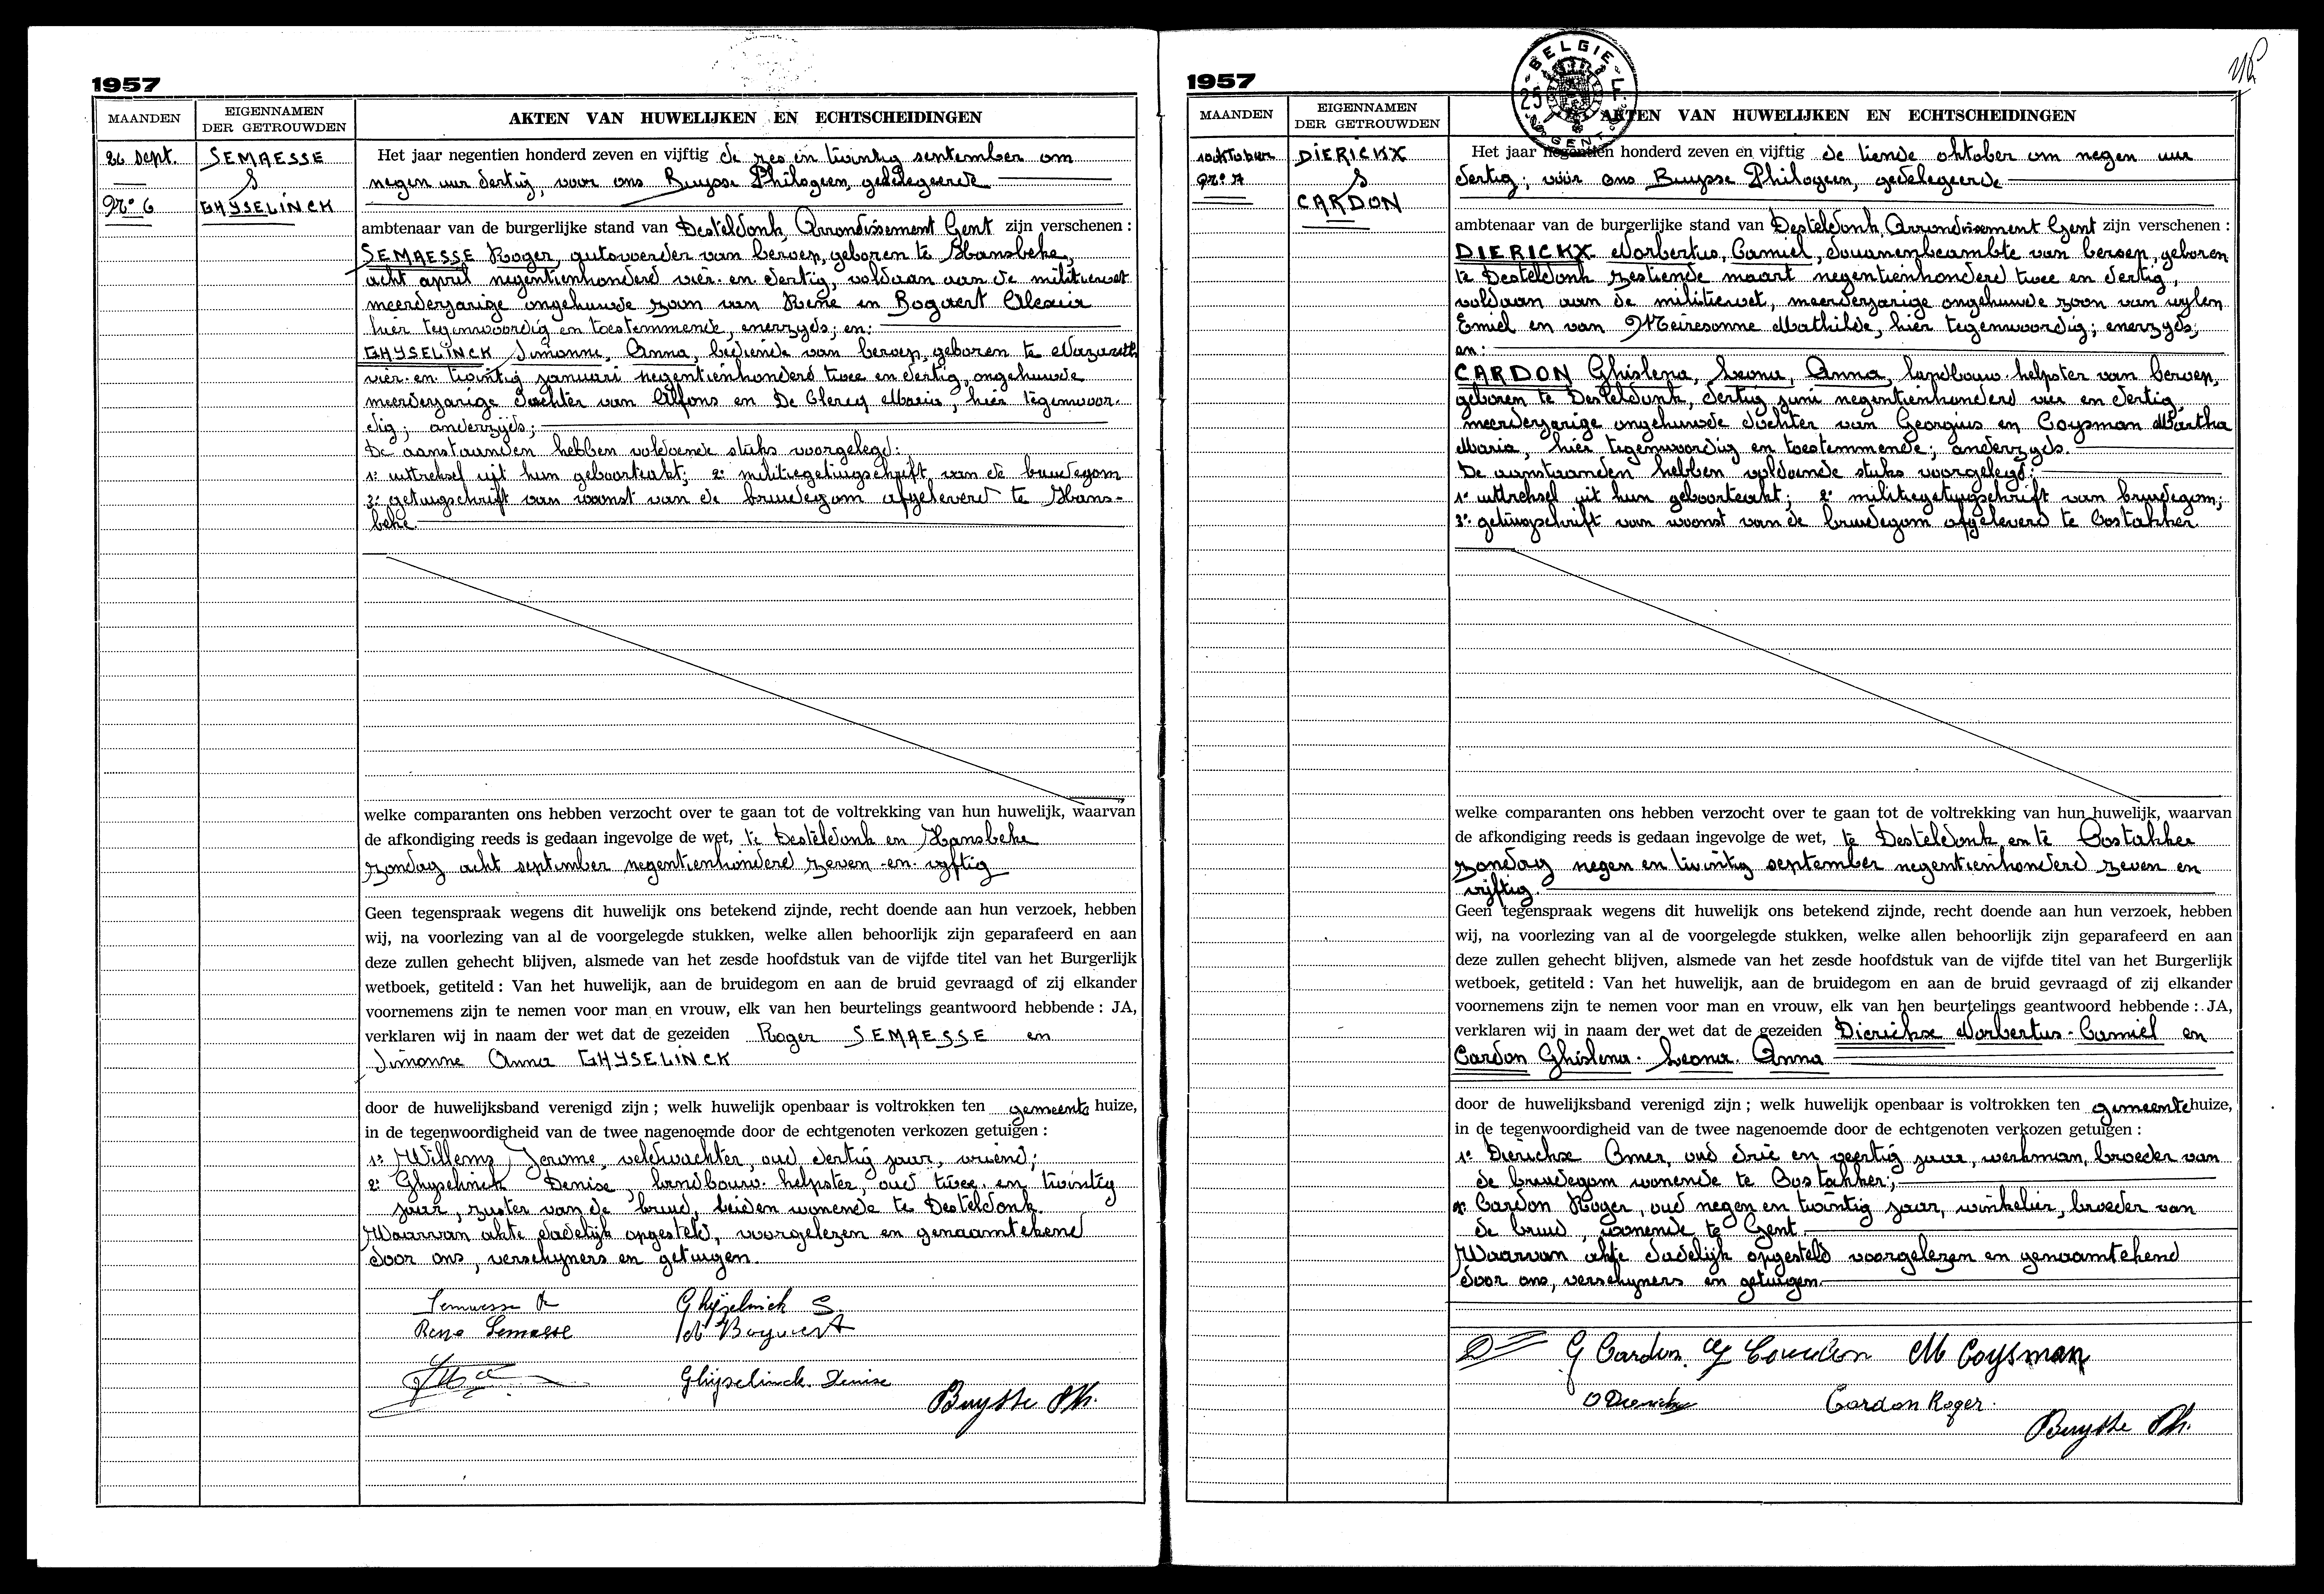 1957
MAANDEN
EIGENNAMEN
DER GETROUWDEN
AKTEN VAN HUWELIJKEN EN ECHTSCHEIDINGEN
26 sept.
Nr. 6
SEMAESSE
&
GHYSELINCK
Het jaar negentien honderd zeven en vijftig de zes en twintig september om
negen uur dertig, voor ons Buysse Philogeen, gedelegeerde
ambtenaar van de burgerlijke stand van Desteldonk, Arrondissement Gent zijn verschenen :
SEMAESSE Roger, autovoerder van beroep, geboren te Hansbeke,
acht april negentienhonderd vier en dertig, voldaan aan de militiewet
meerderjarige ongehuwde zoon van René en Bogaert Alexia
hier tegenwoordig en toestemmende, enerzyds; en:
GHYSELINCK Simonne, Anna, bediende van beroep, geboren te Nazareth
vier en twintig januari negentienhonderd twee en dertig, ongehuwde
meerderjarige dochter van Alfons en De Clercq Maria, hier tegenwoor-
dig; anderzyds;
De aanstaanden hebben voldoende stuks voorgelegd:
1: uittreksel uit hun geboorteakt; 2: militiegetuigschrift van de bruidegom
3: getuigschrift van woonst van de bruidegom afgeleverd te Hans-
beke
welke comparanten ons hebben verzocht over te gaan tot de voltrekking van hun huwelijk, waarvan
de afkondiging reeds is gedaan ingevolge de wet, te Desteldonk en Hansbeke
zondag acht september negentienhonderd zeven en vyftig
Geen tegenspraak wegens dit huwelijk ons betekend zijnde, recht doende aan hun verzoek, hebben
wij, na voorlezing van al de voorgelegde stukken, welke allen behoorlijk zijn geparafeerd en aan
deze zullen gehecht blijven, alsmede van het zesde hoofdstuk van de vijfde titel van het Burgerlijk
wetboek, getiteld : Van het huwelijk, aan de bruidegom en aan de bruid gevraagd of zij elkander
voornemens zijn te nemen voor man en vrouw, elk van hen beurtelings geantwoord hebbende : JA,
verklaren wij in naam der wet dat de gezeiden Roger SEMAESSE en
Simonne Anna GHYSELINCK
door de huwelijksband verenigd zijn ; welk huwelijk openbaar is voltrokken ten gemeente huize,
in de tegenwoordigheid van de twee nagenoemde door de echtgenoten verkozen getuigen :
1: Willems Jerome, veldwachter, oud dertig jaar, vriend;
2: Ghyselinck Denise, landbouw-helpster, oud twee en twintig
jaar, zuster van de bruid, beiden wonende te Desteldonk.
Waarvan akte dadelijk opgesteld, voorgelezen en genaamtekend
door ons, verschyners en getuigen.
Semaesse R Ghijselinck S.
Rene Semaesse Bogaert
Ghijselinck Denise
Buysse Ph.
1957
BELGIE
25
GENT
MAANDEN
EIGENNAMEN
DER GETROUWDEN
AKTEN VAN HUWELIJKEN EN ECHTSCHEIDINGEN
10 oktober
Nr. 7
DIERICKX
&
CARDON
Het jaar negentien honderd zeven en vijftig de tiende oktober om negen uur
dertig; voor ons Buysse Philogeen, gedelegeerde
ambtenaar van de burgerlijke stand van Desteldonk, Arrondissement Gent zijn verschenen :
DIERICKX Norbertus, Camiel, douanenbeambte van beroep, geboren
te Desteldonk zestiende maart negentienhonderd twee en dertig,
voldaan aan de militiewet, meerderjarige ongehuwde zoon van wylen
Emiel en van Meiresonne Mathilde, hier tegenwoordig; enerzyds;
en:
CARDON Ghislena, Leona, Anna, landbouw-helpster van beroep,
geboren te Desteldonk, dertig juni negentienhonderd vier en dertig,
meerderjarige ongehuwde dochter van Georgius en Coysman Martha
Maria, hier tegenwoordig en toestemmende; anderzyds.
De aanstaanden hebben voldoende stuks voorgelegd:
1: uittreksel uit hun geboorteakt; 2: militiegetuigschrift van bruidegom;
3: getuigschrift van woonst van de bruidegom afgeleverd te Oostakker
welke comparanten ons hebben verzocht over te gaan tot de voltrekking van hun huwelijk, waarvan
de afkondiging reeds is gedaan ingevolge de wet, te Desteldonk en te Oostakker
zondag negen en twintig september negentienhonderd zeven en
vijftig.
Geen tegenspraak wegens dit huwelijk ons betekend zijnde, recht doende aan hun verzoek, hebben
wij, na voorlezing van al de voorgelegde stukken, welke allen behoorlijk zijn geparafeerd en aan
deze zullen gehecht blijven, alsmede van het zesde hoofdstuk van de vijfde titel van het Burgerlijk
wetboek, getiteld : Van het huwelijk, aan de bruidegom en aan de bruid gevraagd of zij elkander
voornemens zijn te nemen voor man en vrouw, elk van hen beurtelings geantwoord hebbende : JA,
verklaren wij in naam der wet dat de gezeiden Dierickx Norbertus-Camiel en
Cardon Ghislena-Leona-Anna
door de huwelijksband verenigd zijn ; welk huwelijk openbaar is voltrokken ten gemeente huize,
in de tegenwoordigheid van de twee nagenoemde door de echtgenoten verkozen getuigen :
1: Dierickx Omer, oud drie en veertig jaar, werkman, broeder van
de bruidegom wonende te Oostakker;
2: Cardon Roger, oud negen en twintig jaar, winkelier, broeder van
de bruid, wonende te Gent
Waarvan akte dadelijk opgesteld voorgelezen en genaamtekend
door ons, verschyners en getuigen
G Cardon. G Cardon M Coysman
O Dierickx Cardon Roger.
Buysse Ph.